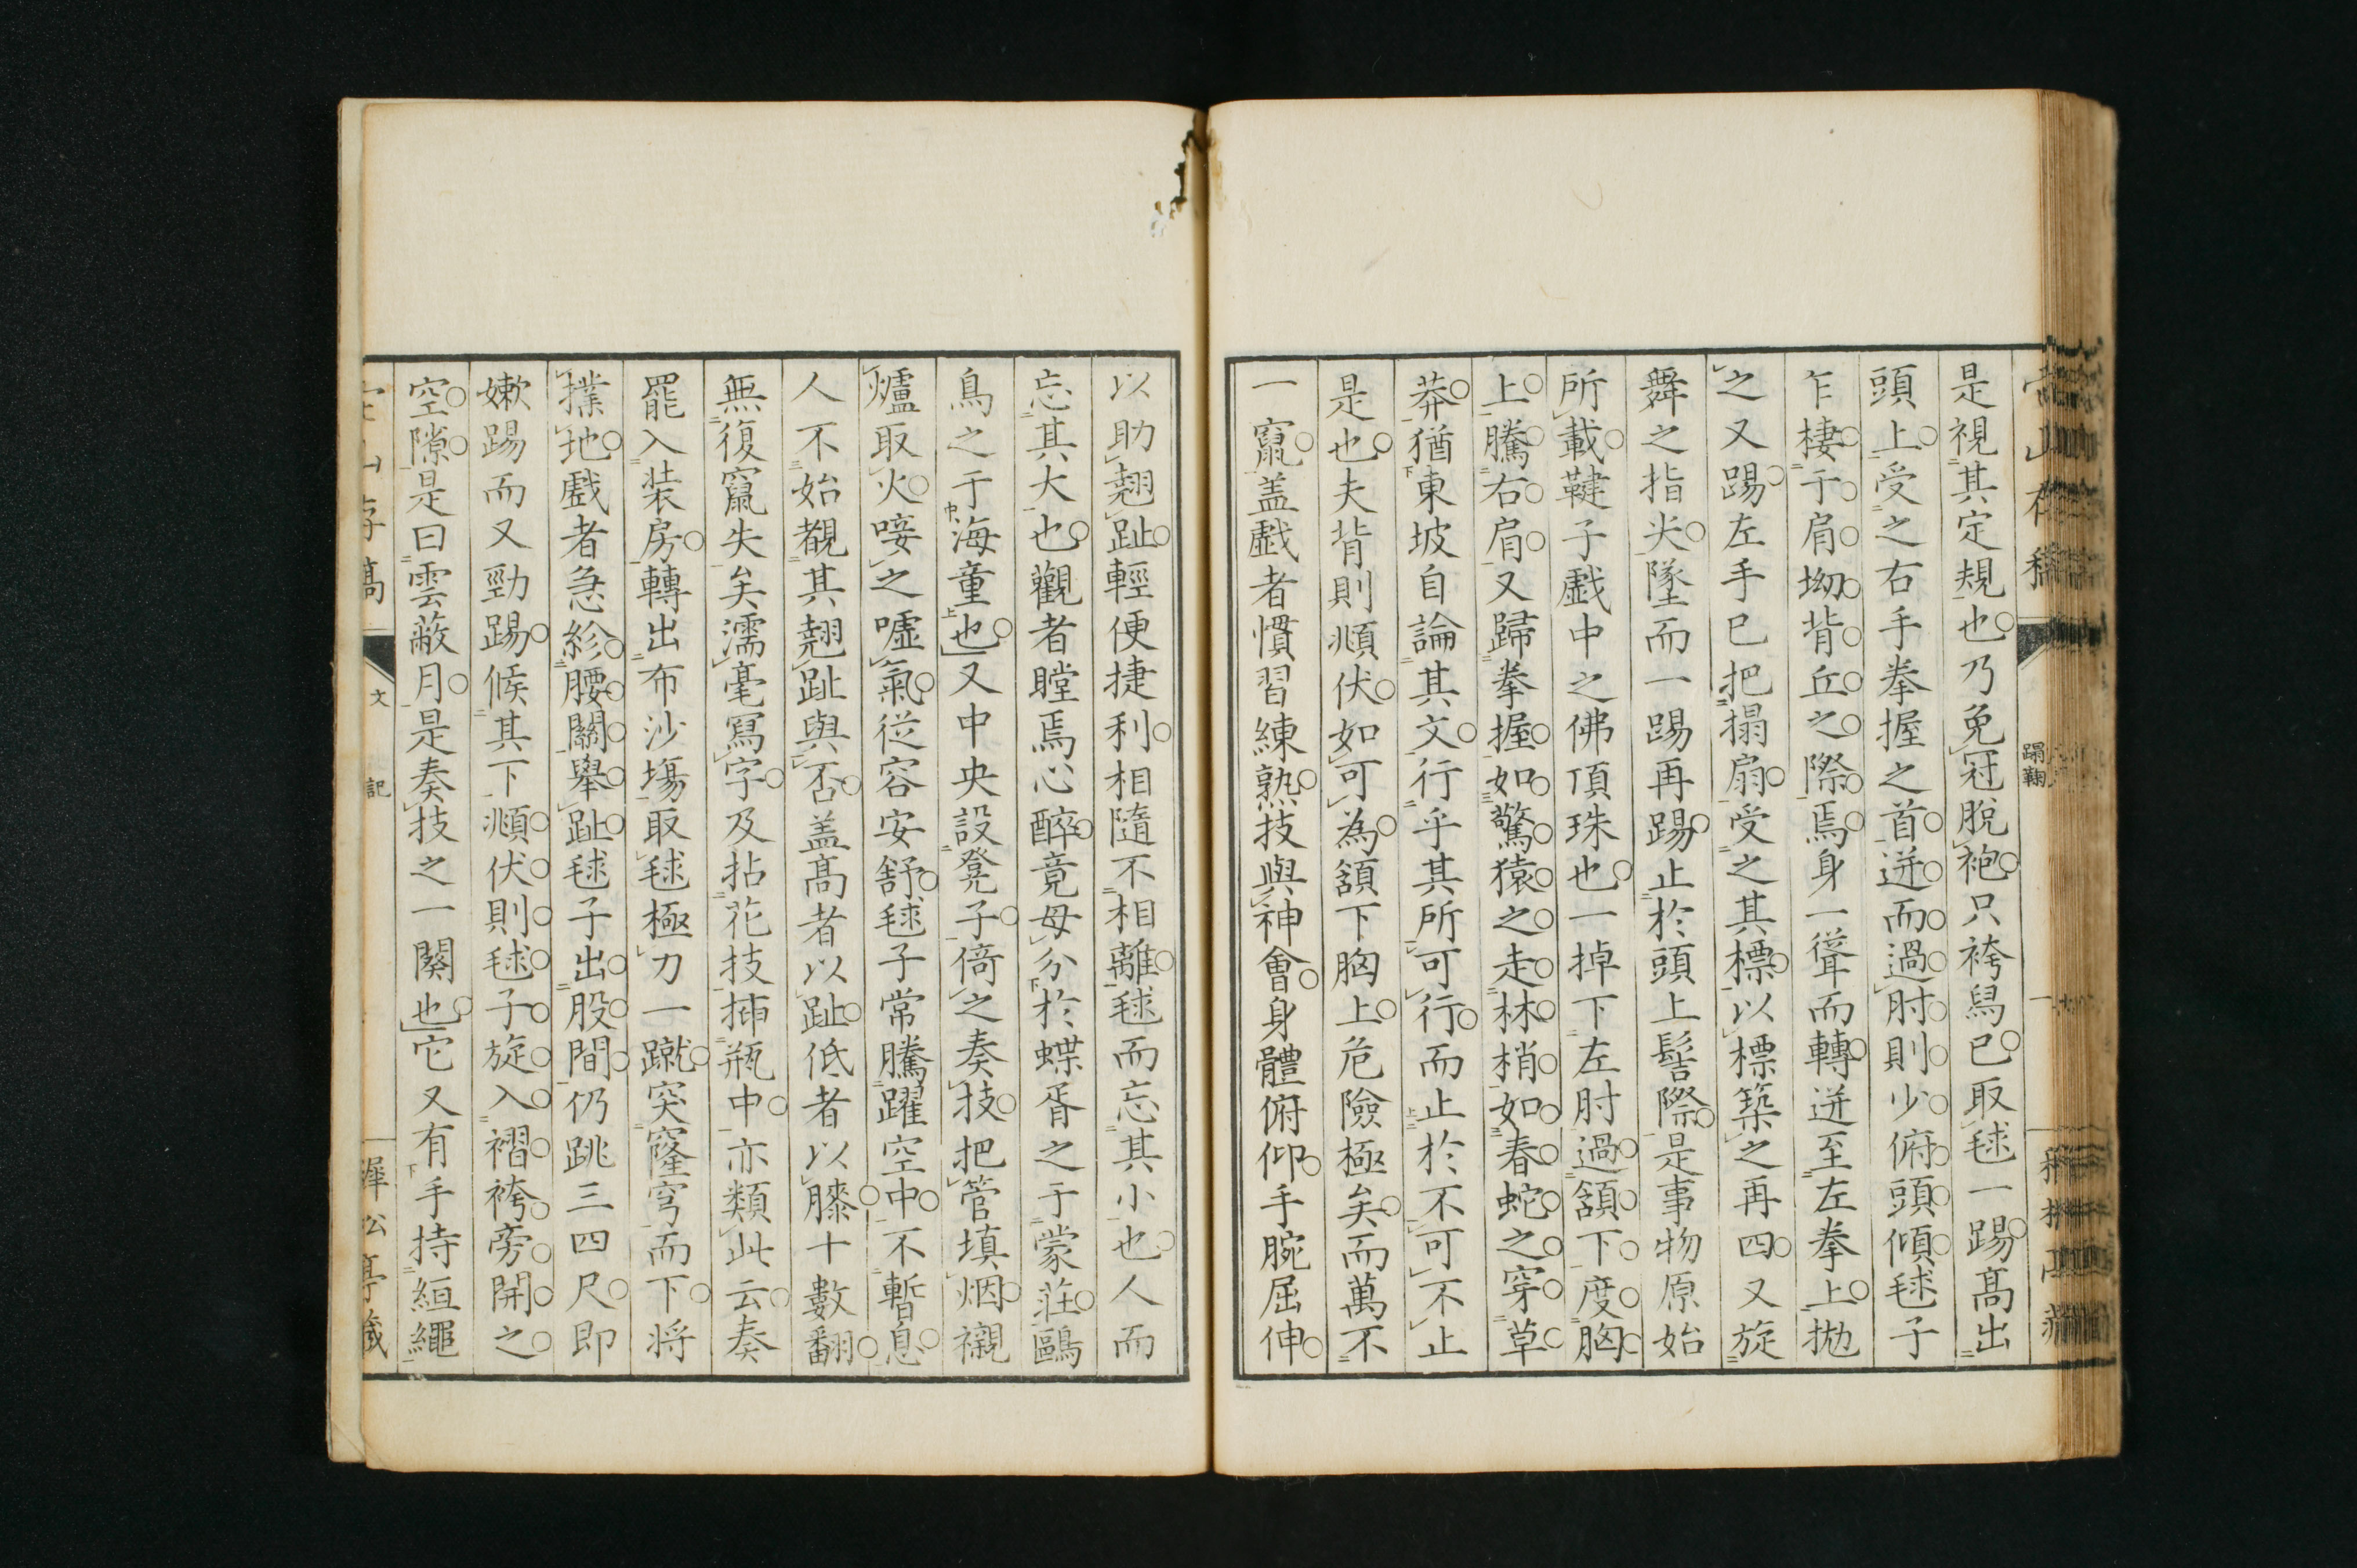 蹋鞠
是視其定規也乃免冠脫袍只袴舄已取毬一踢高出
頭上受之右手拳握之首迸而過肘則少俯頭傾毬子
乍棲于肩坳背丘之際焉身一聳而轉迸至左拳上拋
之又踢左手已把搨扇受之其標以標築之再四又旋
舞之指尖墜而一踢再踢止於頭上髻際是事物原始
所載鞬子戲中之佛頂珠也一掉下左肘過頷下度胸
上騰右肩又歸拳握如驚猿之走林梢如春蛇之穿草
莽猶東坡自論其文行乎其所可行而止於不可不止
是也夫背則順伏如可為頷下胸上危險極矣而萬不
一竄盖戲者慣習練熟技與神會身體俯仰手腕屈伸
以助翹趾輕便捷利相隨不相離毬而忘其小也人而
忘其大也觀者瞠焉心醉竟毋分於蝶胥之于蒙莊鷗
鳥之于海童也又中央設凳子倚之奏技把管填烟襯
爐取火唼之噓氣從容安舒毬子常騰躍空中不暫息
人不始覩其翹趾與否盖高者以趾低者以膝十數翻
無復竄失矣濡毫寫字及拈花技揷瓶中亦類此云奏
罷入装房轉出布沙塲取毬極力一蹴突窿穹而下将
撲地戲者急紾腰關舉趾毬子出股間仍跳三四尺即
嫰踢而又勁踢候其下順伏則毬子旋入褶袴旁開之
空隙是曰雲蔽月是奏技之一闋也它又有手持絙繩
文 記